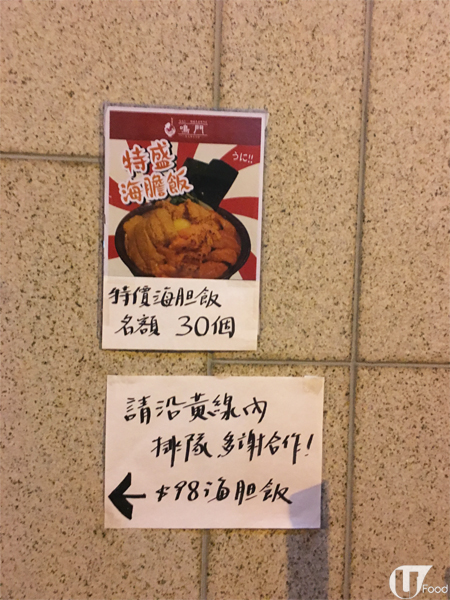 鳴門
特盛
うに!!
海膽飯
特價海胆飯
名額 30個
請沿黃線內
排隊 多謝合作!
← $98海胆飯
U Food